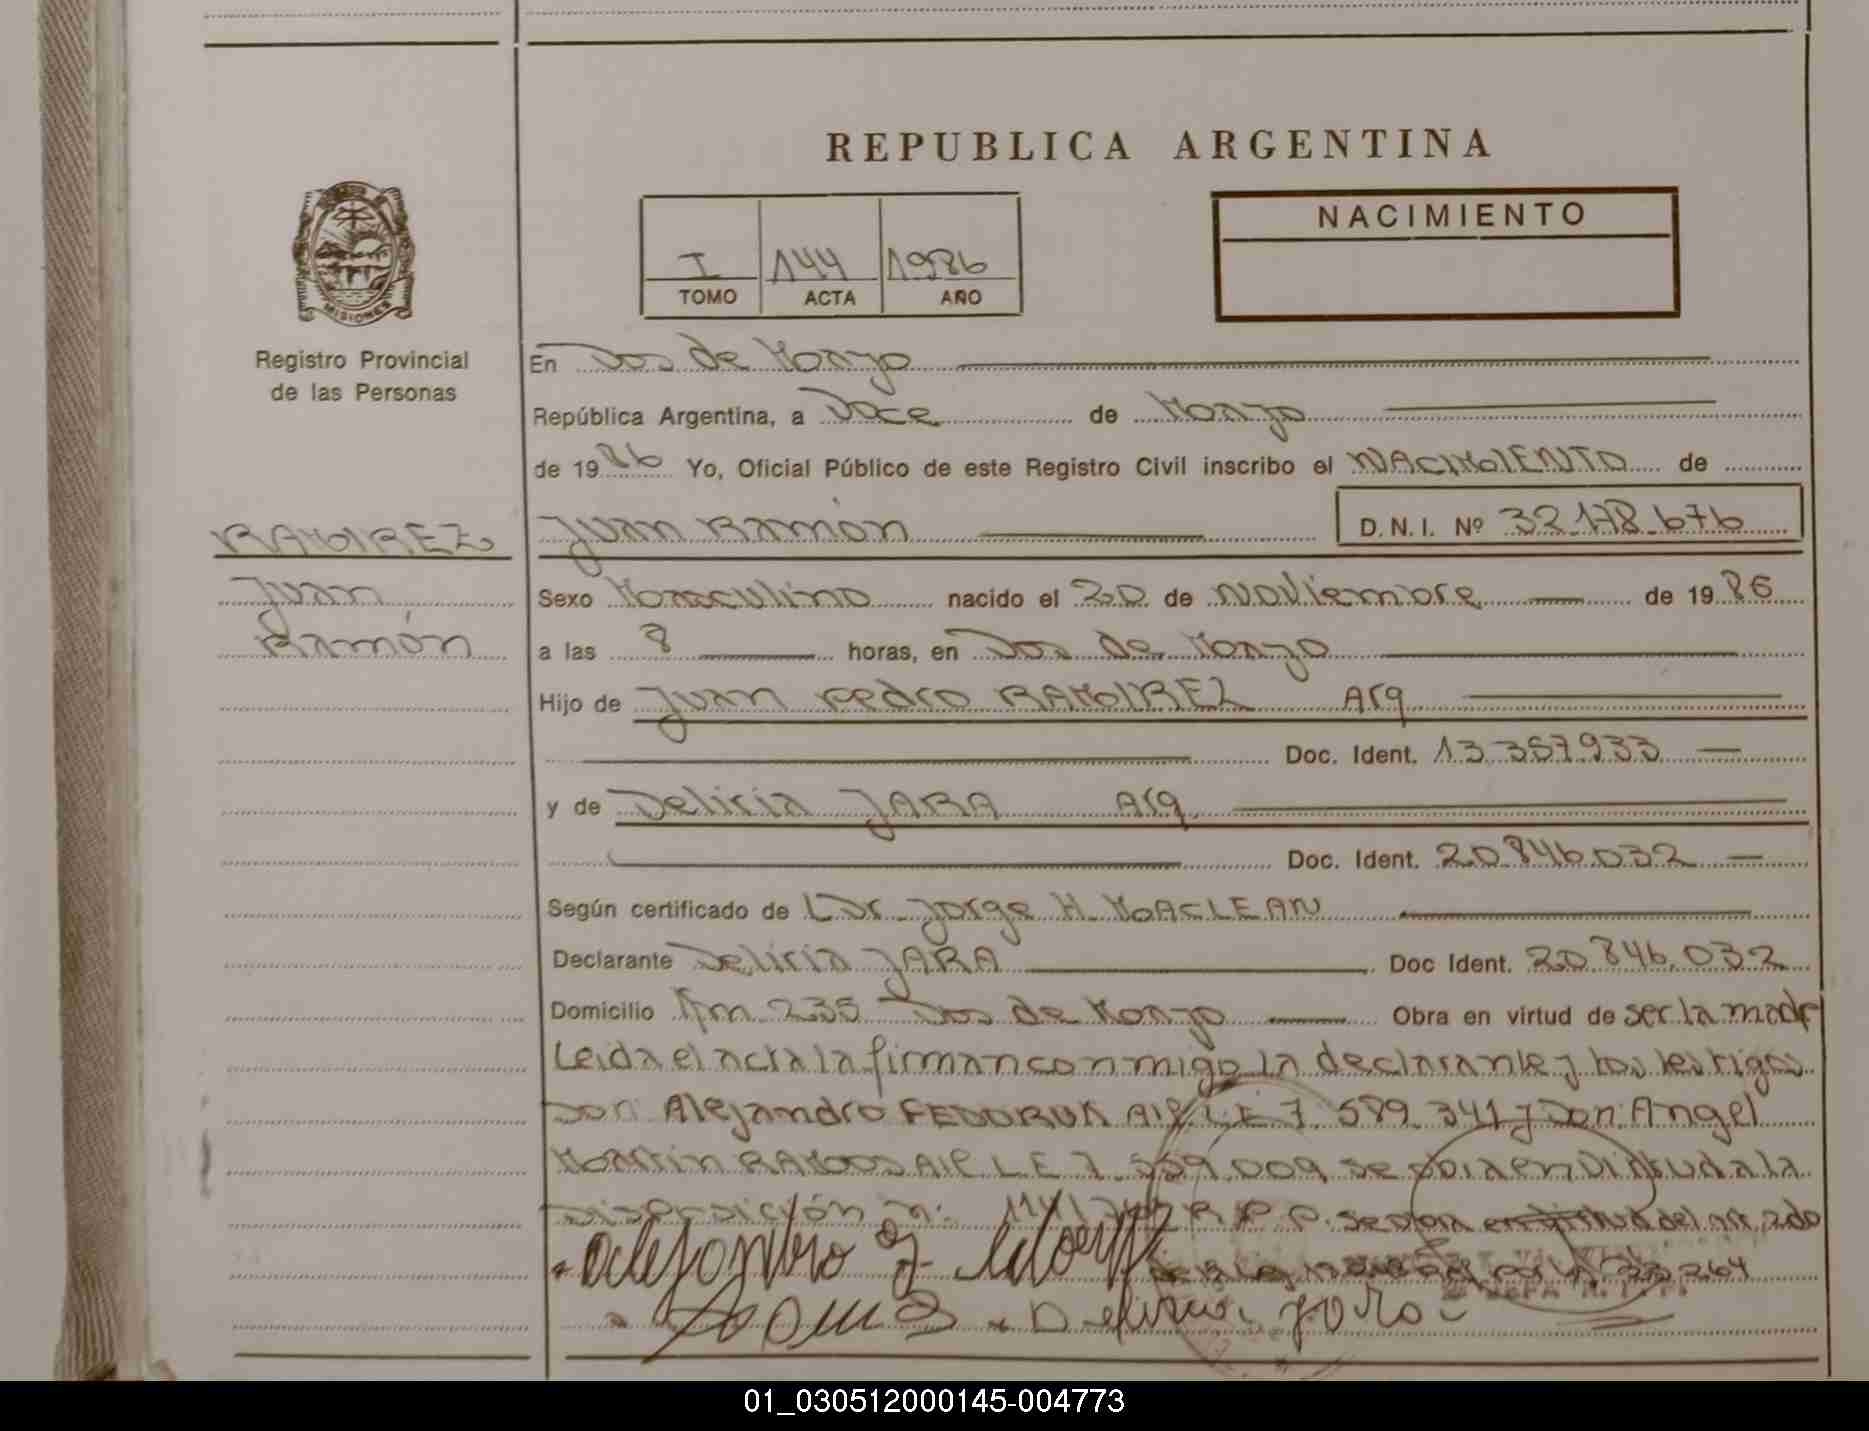 REPUBLICA ARGENTINA
NACIMIENTO
I 144 1986
TOMO ACTA AÑO
MISIONES
Registro Provincial
de las Personas
En Dos de Mayo
República Argentina, a Doce de Mayo
de 1986 Yo, Oficial Público de este Registro Civil inscribo el NACIMIENTO de
RAMIREZ
Juan Ramón D.N.I. Nº 32.178.676
Juan
Ramón
Sexo Masculino nacido el 20 de Noviembre de 1986
a las 8 horas, en Dos de Mayo
Hijo de Juan Pedro RAMIREZ Arg
Doc. Ident. 13.357.933
y de Deliria JARA Arg.
Doc. Ident. 20.846.032
Según certificado de Dr. Jorge H. MACLEAN
Declarante Deliria JARA Doc Ident. 20.846.032
Domicilio Km 235 Dos de Mayo Obra en virtud de ser la madre
Leida el acta la firman conmigo la declarante y los testigos
Don Alejandro FEDORUK L.E 7.589.341 y Don Angel
Martin RAMOS L.E 7.559.009 se en virtud a la
Disposición n: R.P.P. del art 2do
23.264
01_030512000145-004773